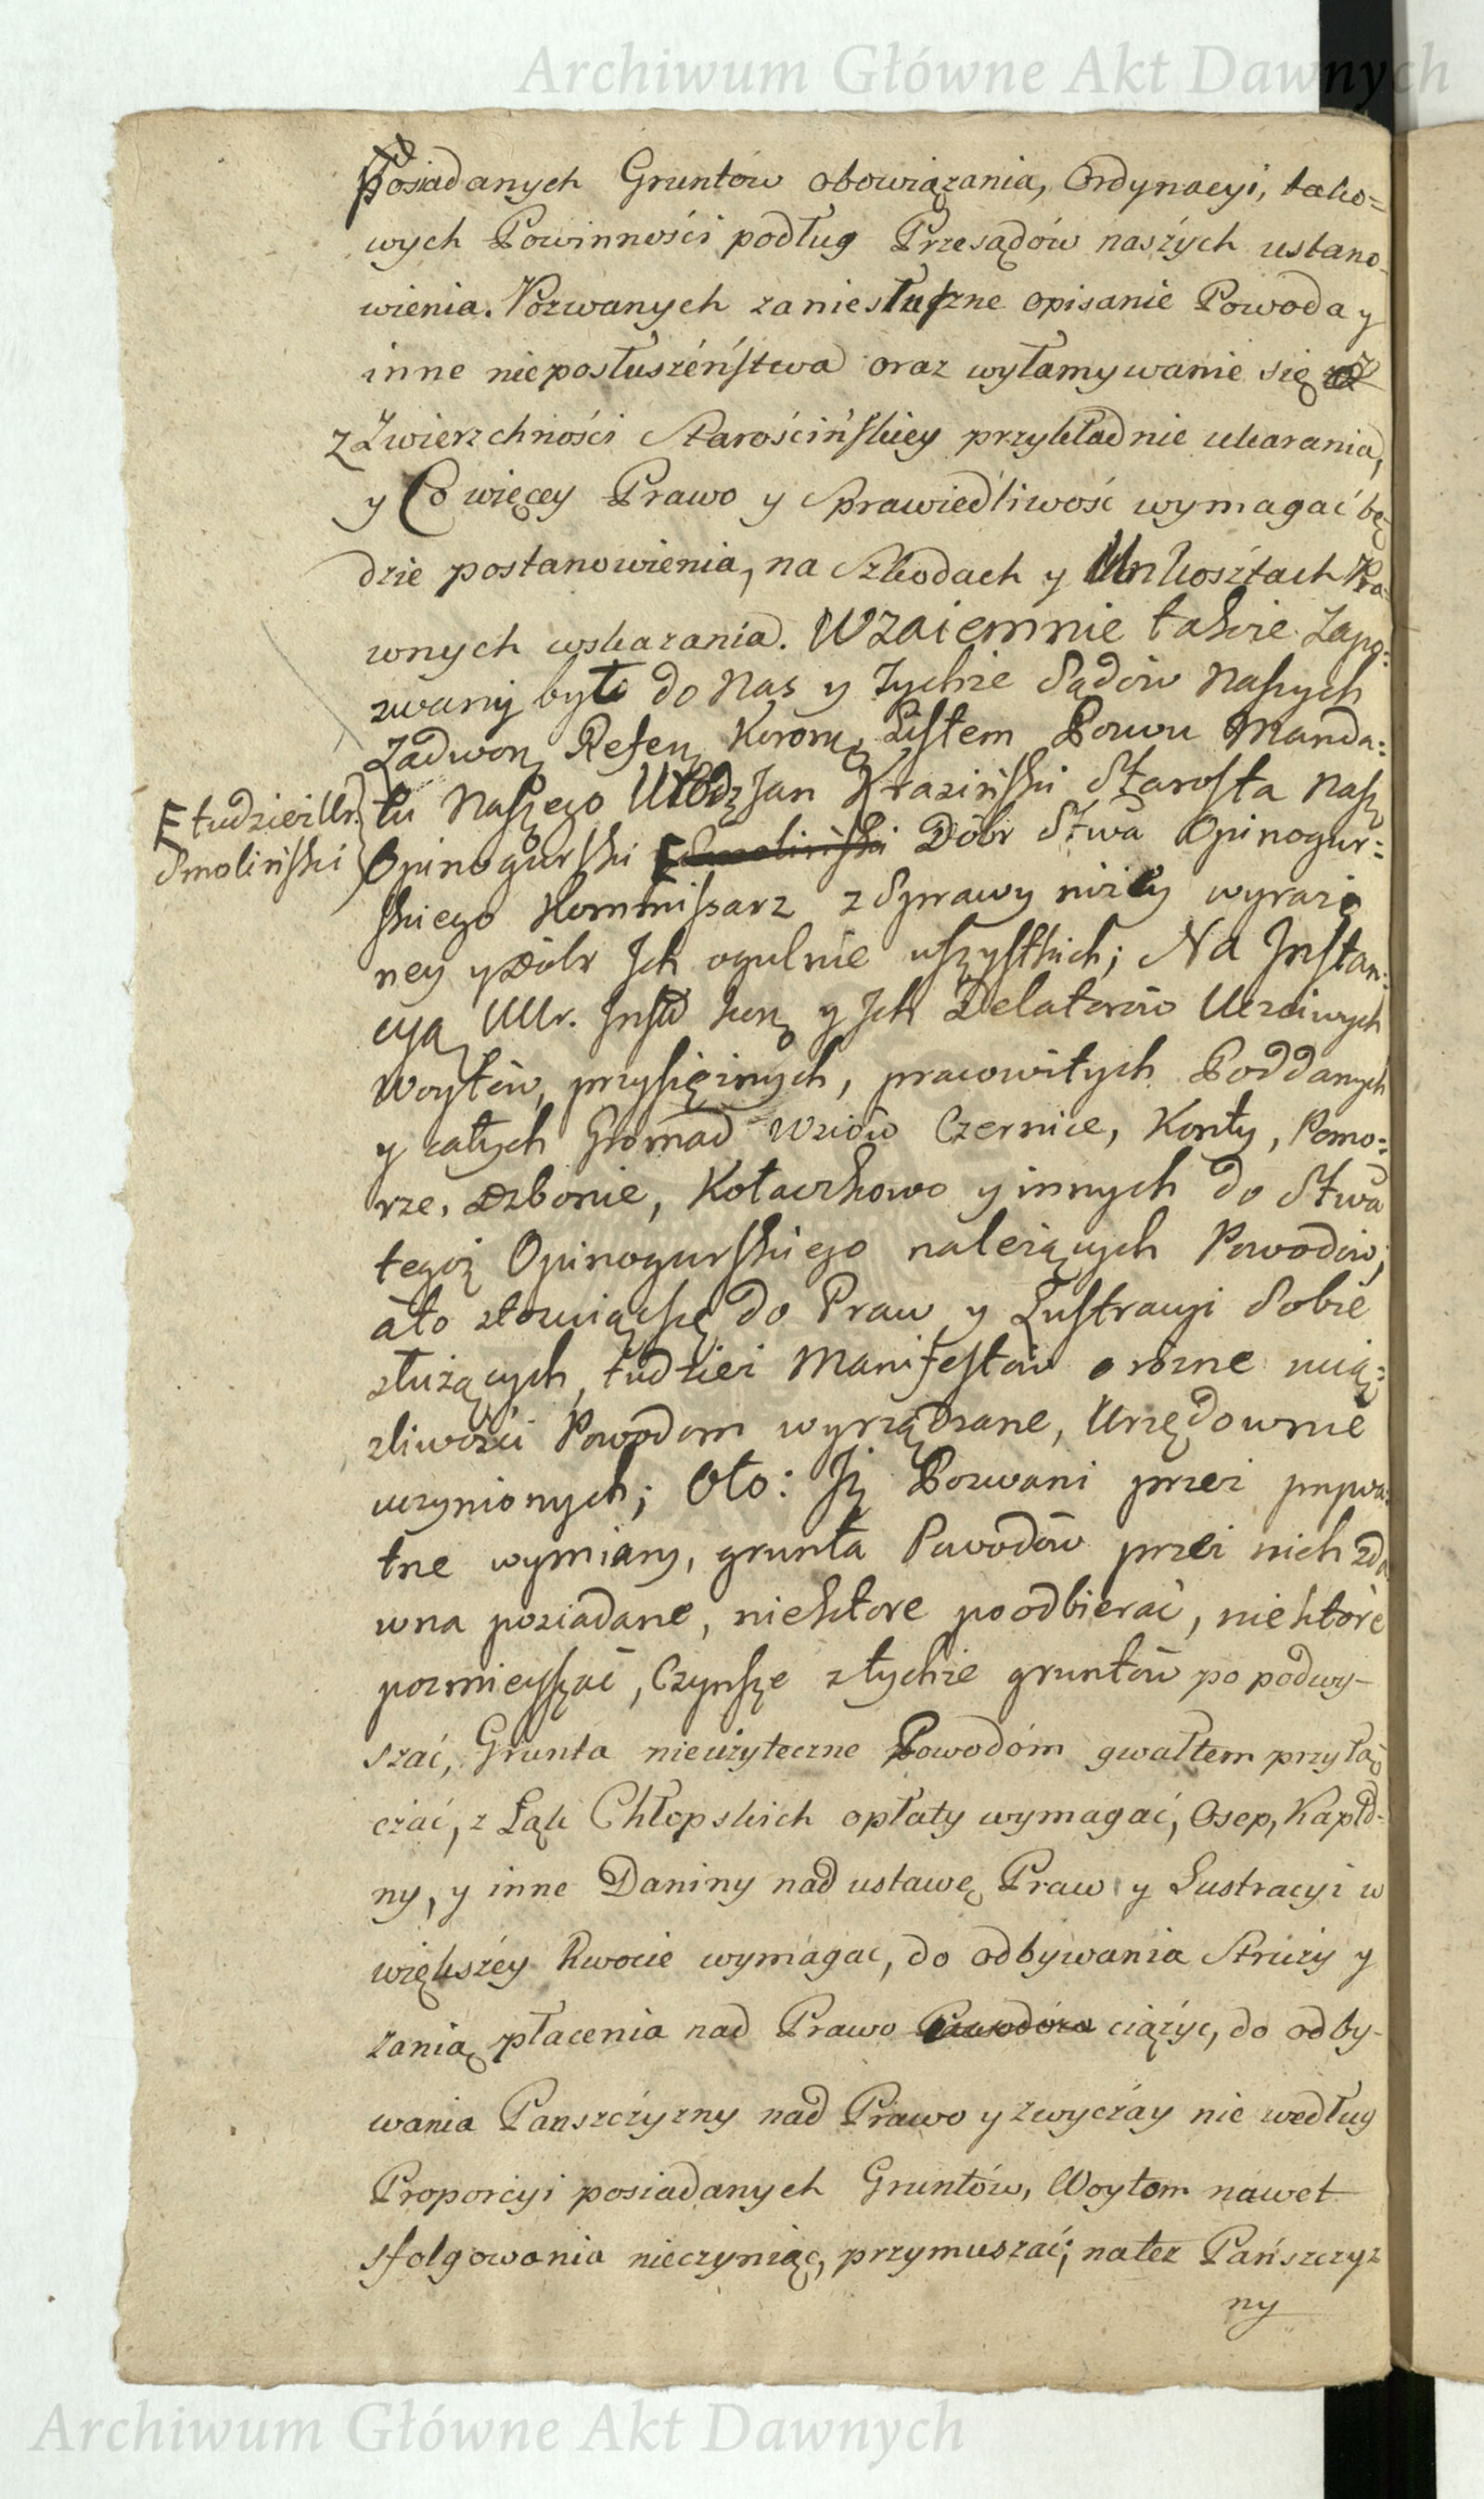 Archiwum Główne Akt Dawnych
Posiadanych Gruntów obowiązania, Ordynacyi, tako=
wych Powinności podług Przesądów naszych ustano=
wienia. Pozwanych za niesłuszne opisanie Powoda y
inne nieposłuszeństwa oraz wyłamywanie się
z Zwierzchności Starościńskiey przykładnie ukarania,
y Co więcey Prawo y Sprawiedliwość wymagać bę
dzie postanowienia, na Szkodach y Unkosztach Pra=
wnych wskazania. Wzaiemnie także Zapo=
zwany był do Nas y Tychże Sądów Naszych
Zadwor. Refer. Koron. Listem Pozwu Manda=
tu Naszego Urodz. Jan Krasiński Starosta Nasz
Ⱡ tudzież Ur.
Smoliński
Opinogurski Ⱡ Smoliński Dóbr Stwa Opinogur=
skiego Kommissarz z Sprawy niżey wyrażo
ney y Dóbr Ich ogulnie wszystkich; Na Instan=
cyą Ur. Inst. Kor. y Ich Delatorów Uczciwych
Woytów, przysiężnych, pracowitych Poddanych
y całych Gromad Wsiów Czernice, Konty, Pomo=
rze, Dzbonie, Kołaczkowo y innych do Stwa
tegoż Opinogurskiego należących Powodów,
ato stosuiąc się do Praw y Lustracyi Sobie
służących, tudzież Manifestów o różne ucią=
żliwości Powodom wyrządzane, Urzędownie
uczynionych; Oto: Iż Pozwani przez prywa=
tne wymiary, grunta Powodów przez nich zda
wna posiadane, niektóre poodbierać, niektóre
pozmieyszać, Czynsze z tychże gruntów popodwy-
szać, Grunta nieużyteczne Powodóm gwałtem przyłą
czać, z Łąk Chłopskich opłaty wymagać, Osep, Kapło-
ny, y inne Daniny nad ustawę Praw y Lustracyi w
większey kwocie wymagać, do odbywania Stróży y
zanią płacenia nad Prawo Powodów ciążyć, do odby-
wania Panszczyzny nad Prawo y zwyczay nie według
Proporcyi posiadanych Gruntów, Woytom nawet
sfolgowania nieczyniąc, przymuszać; na też Pańszczyz
ny
Archiwum Główne Akt Dawnych